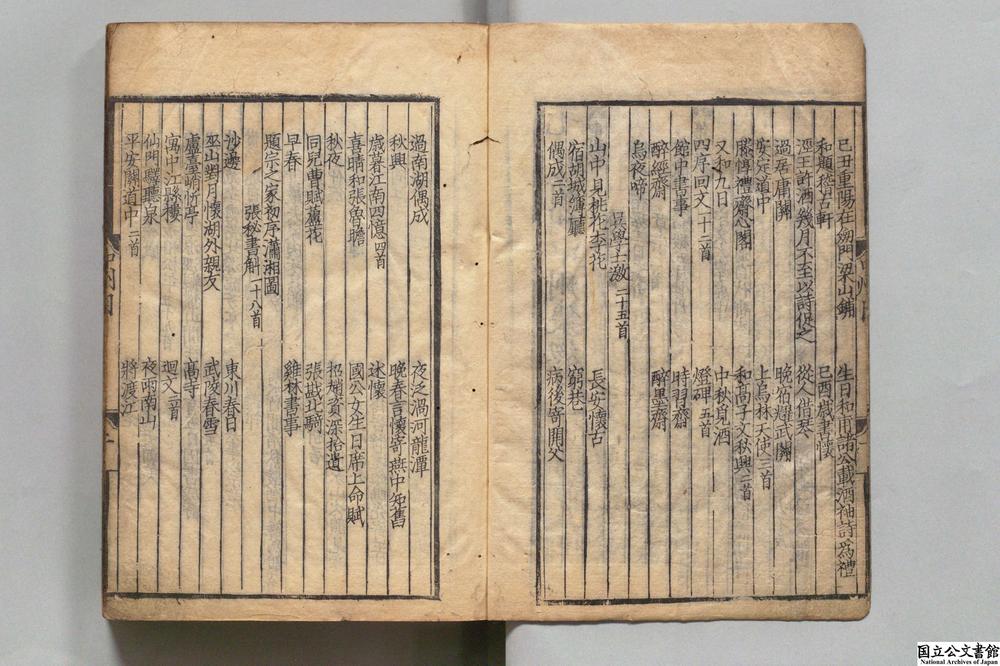 己丑重陽在劒門梁山鋪　生日和甫諸公載酒袖詩為禮
和題從古軒　己酉戯書懷
涇王許酒幾月不至以詩促之　從人借琴
過居庸關　晚宿耀武關
安定道中　上烏林天使三首
滕惇禮齋心閣　和高子文秋興二首
又和九日　中秋覓酒
四序回文一十二首　燈碑五首
館中書事　時習齋
醉經齋　醉墨齋
烏夜啼
吳學士激 二十五首
山中見桃花李花　長安懷古
宿胡城簿廳　窮巷
偶成二首　病後寄開父
過南湖偶成　夜泛渦河龍潭
秋興　晚春言懷寄燕中知舊
歲暮江南四憶四首　述懷
喜晴和張魯瞻　國公文生日席上命賦
秋夜　賓深拾遺
同兒曹賦蘆花　張戡北騎
早春　雞林書事
題宗之家初序瀟湘圖
張秘書斛一十八首
沙邊　東川春日
巫山對月懷湖外親友　武陵春雪
盧臺峭帆亭　高寺
寓中江縣樓　迴文二首
仙門驛聽泉　夜雨南山
平安關道中二首　將渡江
国立公文書館
National Archives of Japan